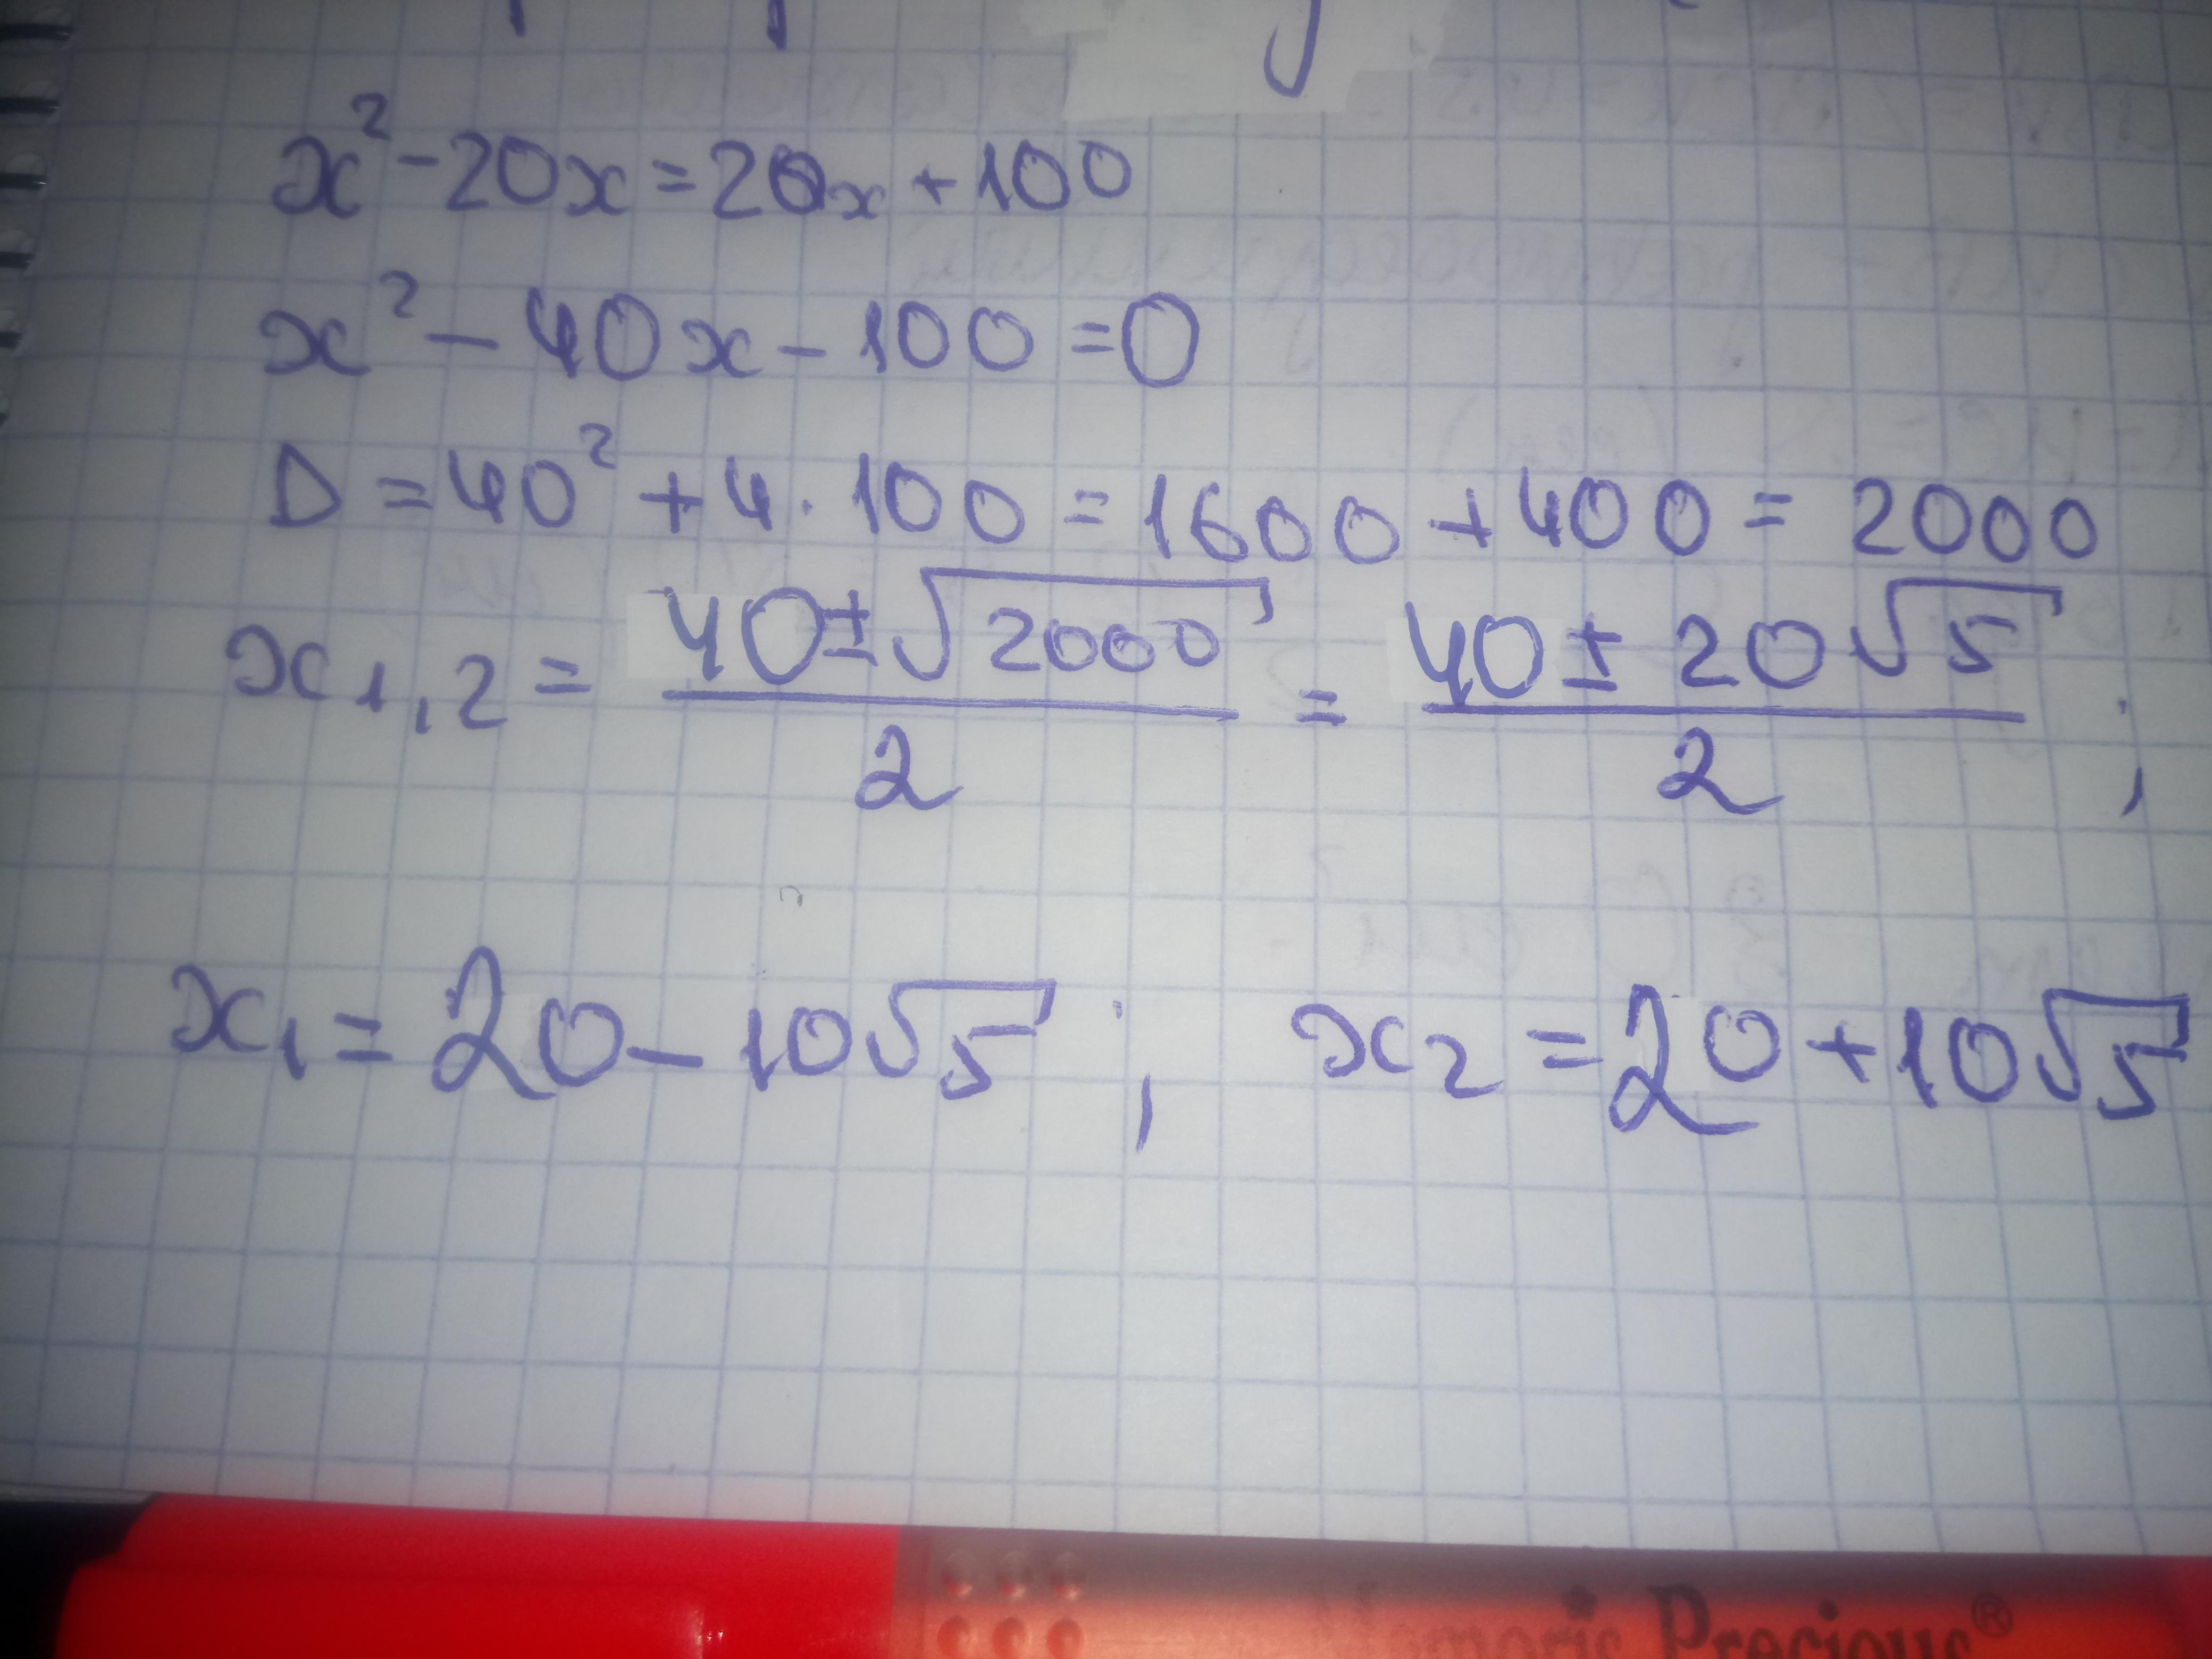 x² - 20x = 20x + 100
x² - 40x - 100 = 0
D = 40² + 4 · 100 = 1600 + 400 = 2000
x₁,₂ = (40 ± √2000)/2 = (40 ± 20√5)/2 ;
x₁ = 20 - 10√5 ; x₂ = 20 + 10√5
Precious®